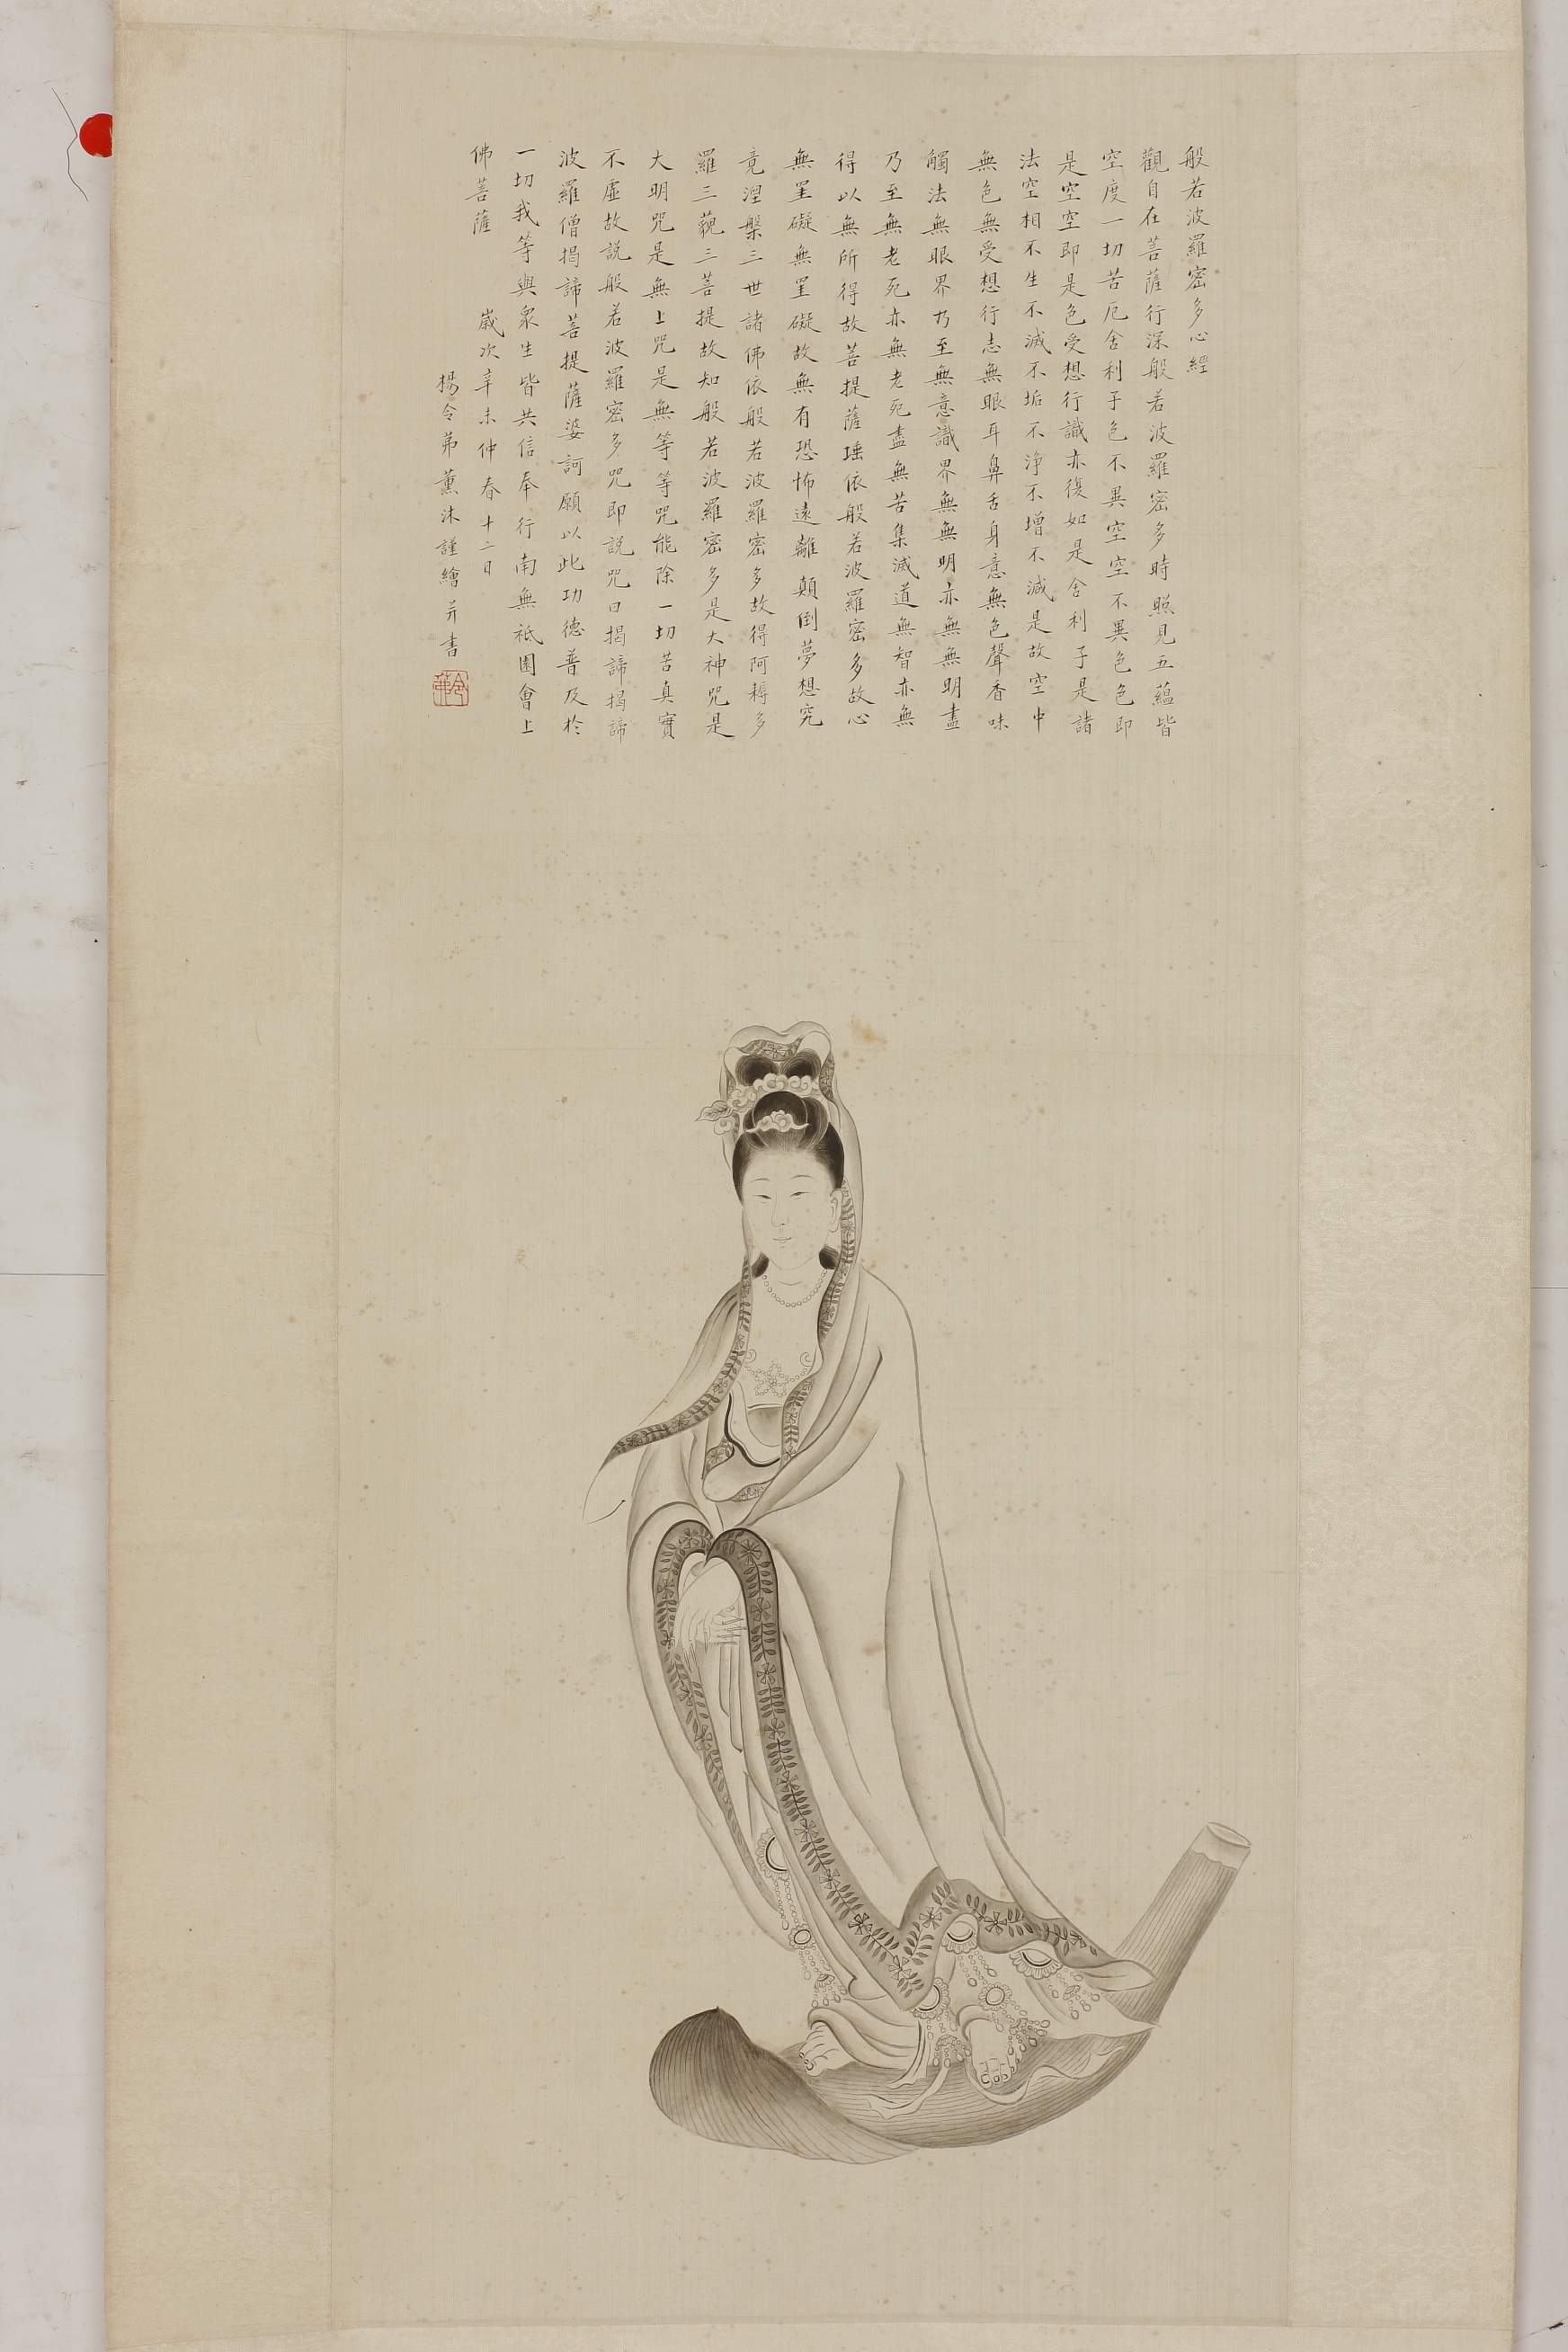 般若波羅密多心經
觀自在菩薩行深般若波羅密多時照見五蘊皆
空度一切苦厄舍利子色不異空空不異色色即
是空空即是色受想行識亦復如是舍利子是諸
法空相不生不滅不垢不淨不增不減是故空中
無色無受想行志無眼耳鼻舌身意無色聲香味
觸法無眼界乃至無意識界無無明亦無無明盡
乃至無老死亦無老死盡無苦集滅道無智亦無
得以無所得故菩提薩瑤依般若波羅密多故心
無罣礙無罣礙故無有恐怖遠離顛倒夢想究
竟涅槃三世諸佛依般若波羅密多故得阿耨多
羅三藐三菩提故知般若波羅密多是大神咒是
大明咒是無上咒是無等等咒能除一切苦真實
不虛故說般若波羅密多咒即說咒曰揭諦揭諦
波羅僧揭諦菩提薩婆訶願以此功德普及於
一切我等與眾生皆共信奉行南無祇園會上
佛菩薩
歲次辛未仲春十二日
楊令茀薰沐謹繪并書
令茀